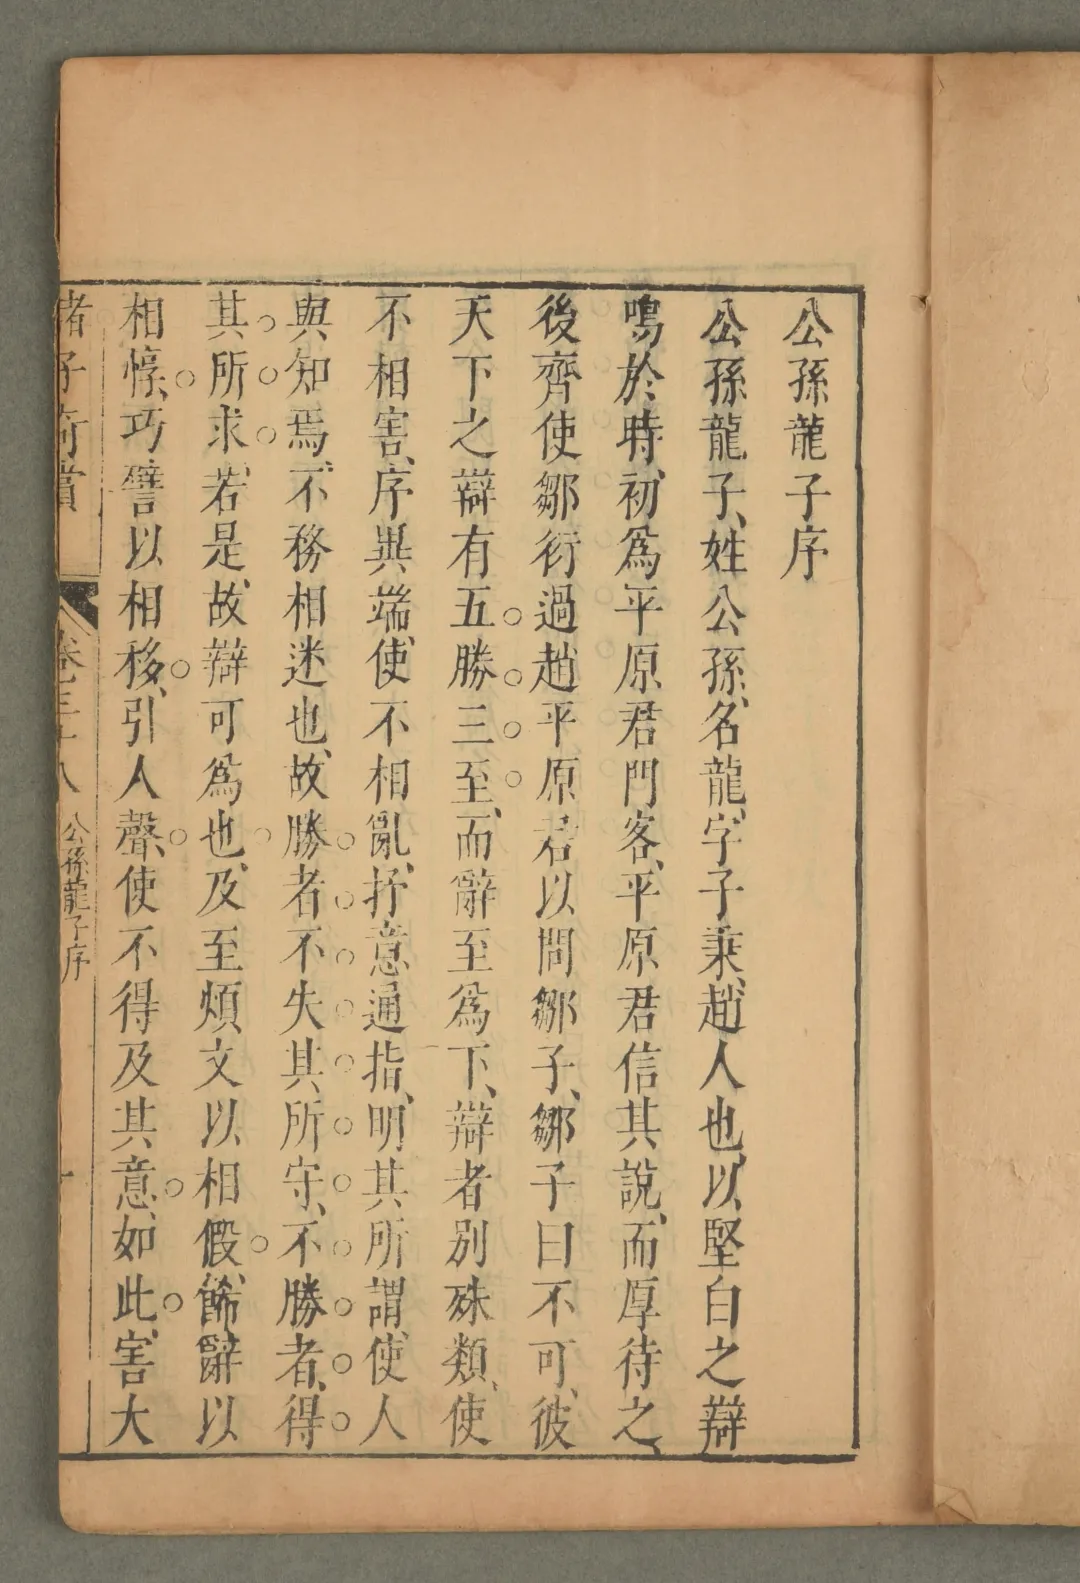 公孫龍子序
公孫龍子、姓公孫、名龍、字子秉、趙人也、以堅白之辯
鳴於時、初爲平原君門客、平原君信其說、而厚待之、
後齊使鄒衍過趙平原君以問鄒子、鄒子曰不可、彼
天下之辯有五勝三至、而辭至爲下、辯者別殊類、使
不相害、序異端、使不相亂、抒意通指、明其所謂、使人
與知焉、不務相迷也、故勝者不失其所守、不勝者、得
其所求、若是、故辯可爲也、及至煩文以相假、餙辭以
相惇、巧譬以相移、引人聲、使不得及其意、如此、害大
諸子奇賞
卷三十八
公孫龍子序
一